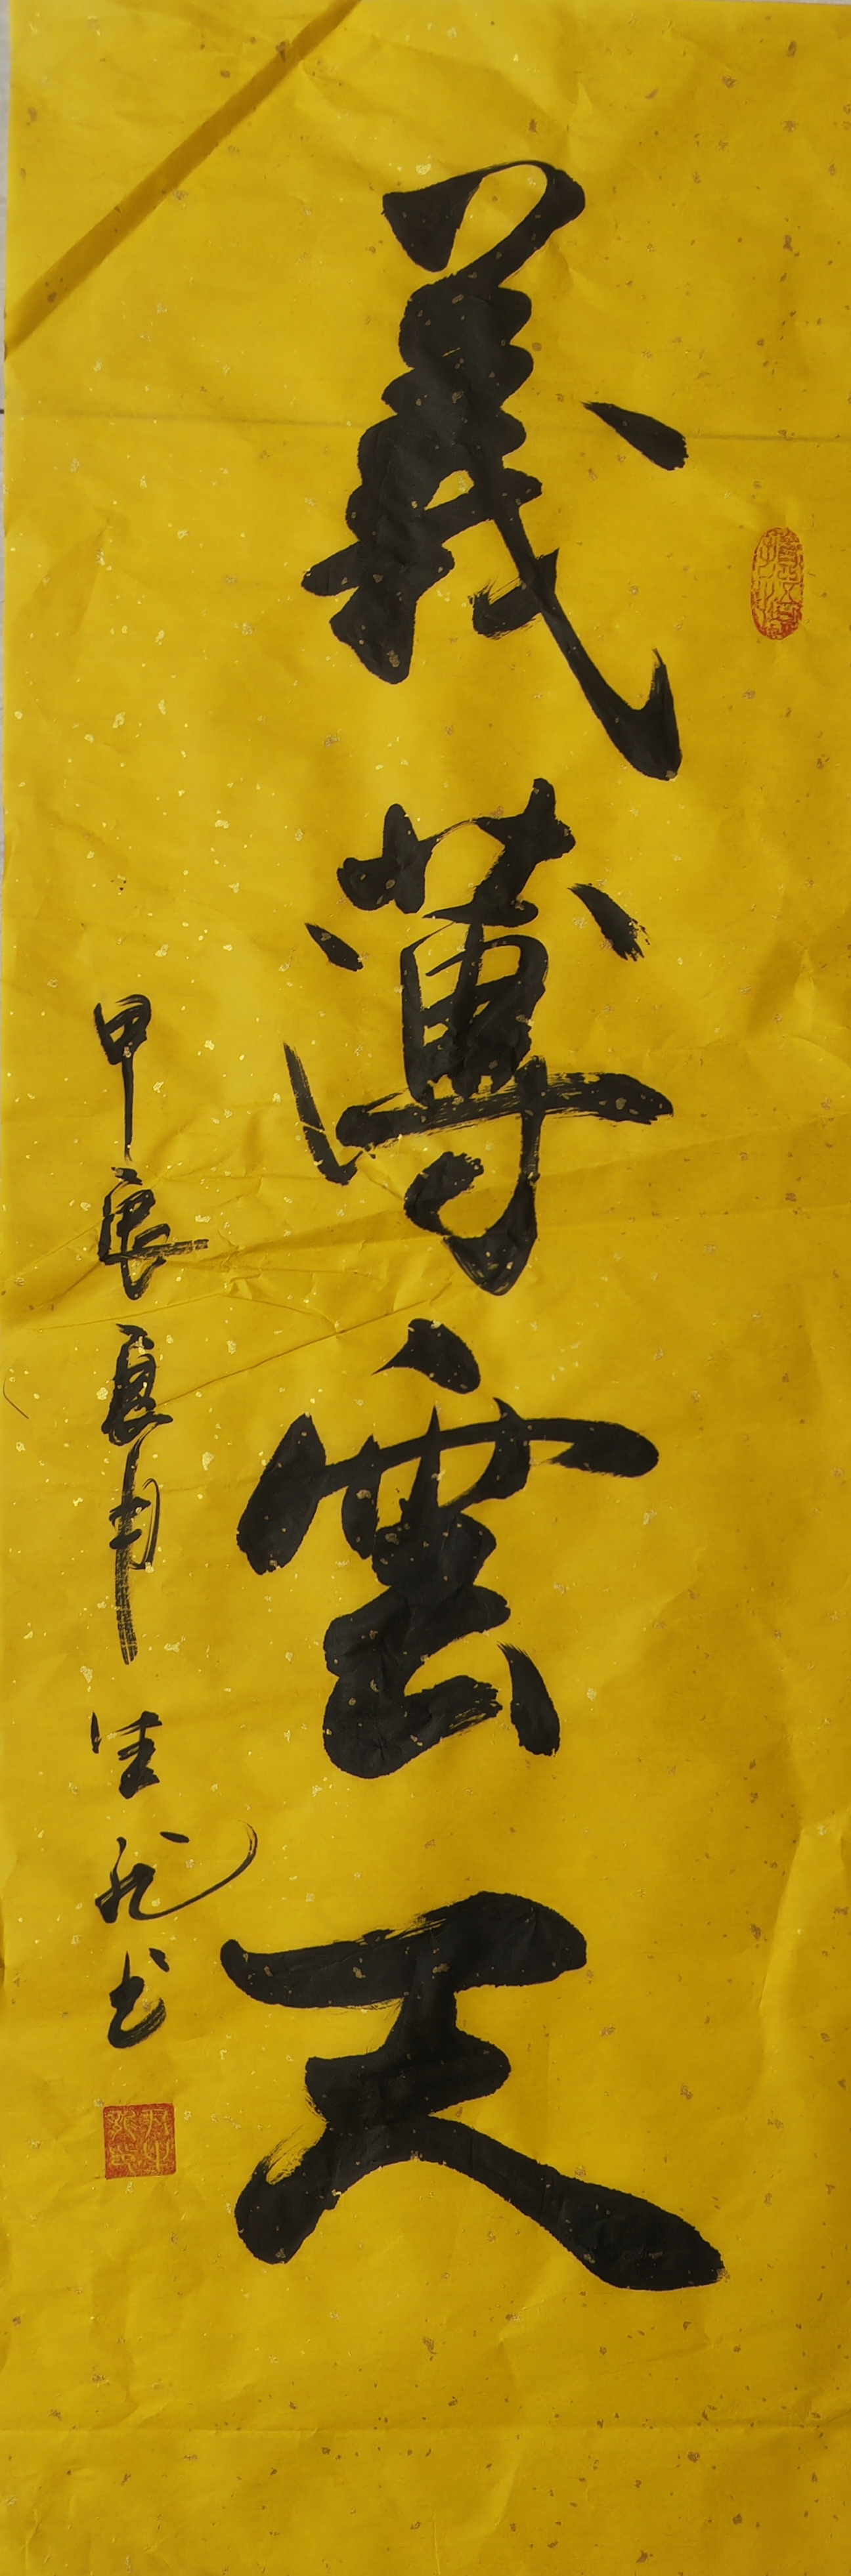 義薄雲天
甲辰夏月生龍书